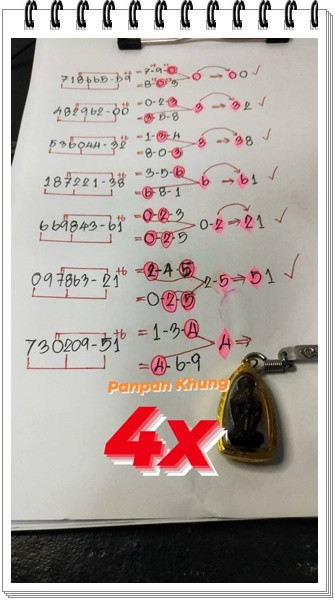 718665-59 +6 = 7-9-0 0 → 00 ✓
= 8-0-3
482962-00 = 0-2-3 3 → 32 ✓
= 3-5-8
536044-32 = 1-3-4 3 → 38 ✓
= 8-0-3
187221-38 = 3-5-6 6 → 61 ✓
= 6-8-1
669843-61 +6 = 0-2-3 0-2 ⇒ 21 ✓
= 0-2-5
097863-21 +6 = 2-4-5 2-5 ⇒ 51 ✓
= 0-2-5
730209-51 +6 = 1-3-4 4 ⇒
= 4-6-9
Panpan Khung
4x